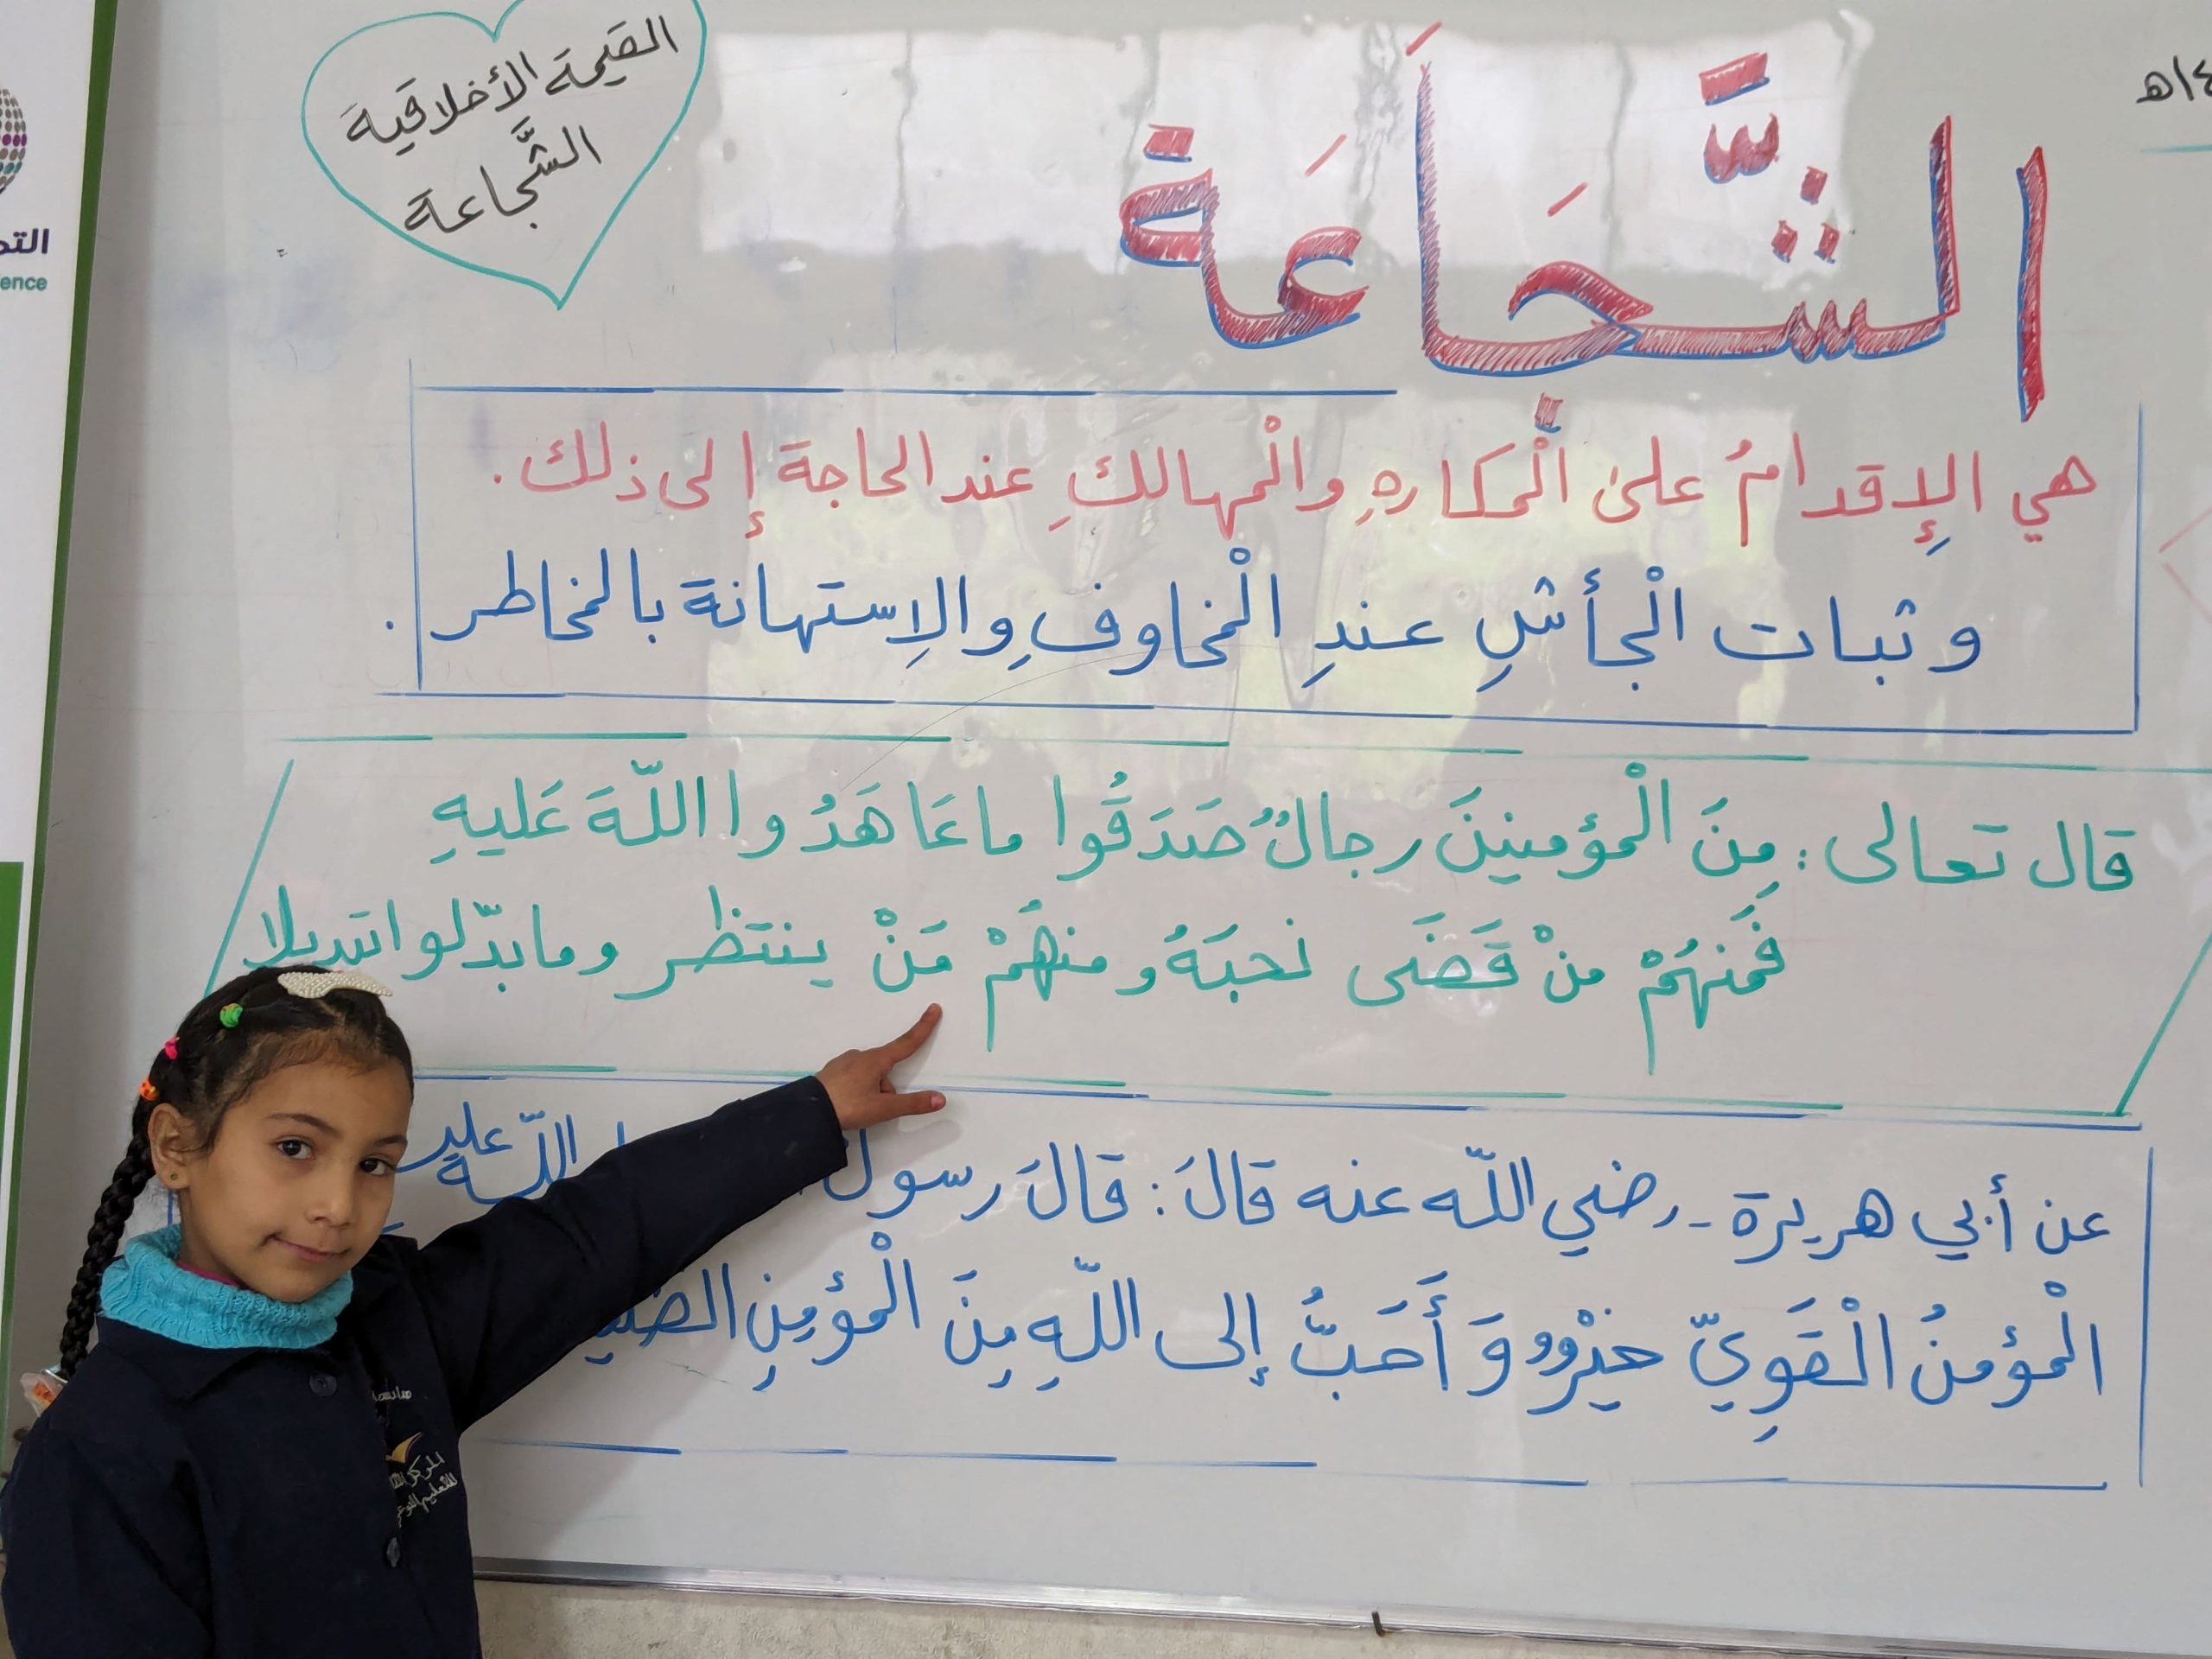 القيمة الأخلاقية
الشَّجاعة
الشَّجَاَعَة
هي الإِقدامُ على الْمكارهِ والْمهالكِ عند الحاجة إلى ذلك.
وثبات الْجأشِ عندِ الْمخاوفِ والاِستهانة بالمخاطر.
قال تعالى: مِنَ الْمؤمنينَ رجالٌ صَدَقُوا ما عَاهَدُوا اللّهَ عَليهِ
فَمنهُمْ منْ قَضَى نحبَهُ ومنهُمْ مَنْ ينتظر وما بدّلوا تبديلا
عن أبي هريرة - رضي اللّه عنه قالَ: قالَ رسول اللّه
الْمؤمنُ الْقَوِيّ خيْرٌ وَ أَحَبُّ إلى اللّهِ مِنَ الْمؤمِنِ
ence